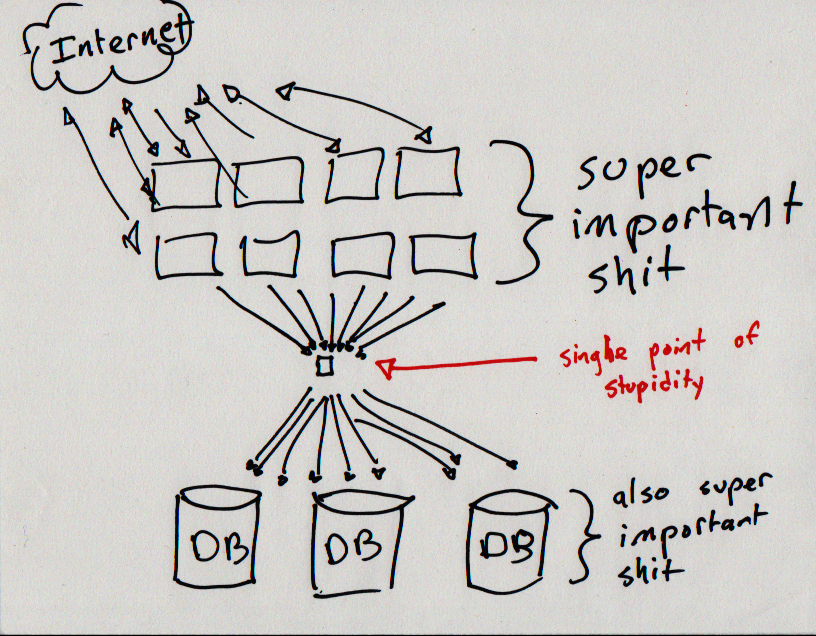 Internet
super
important
shit
single point of
stupidity
DB
DB
DB
also super
important
shit